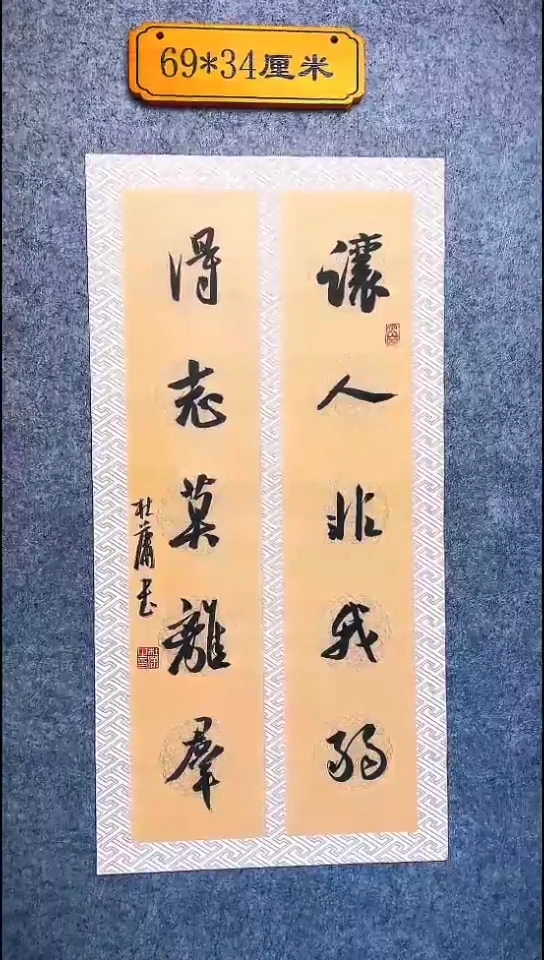 69*34厘米
讓人非我弱
得志莫離羣
杜蕭书